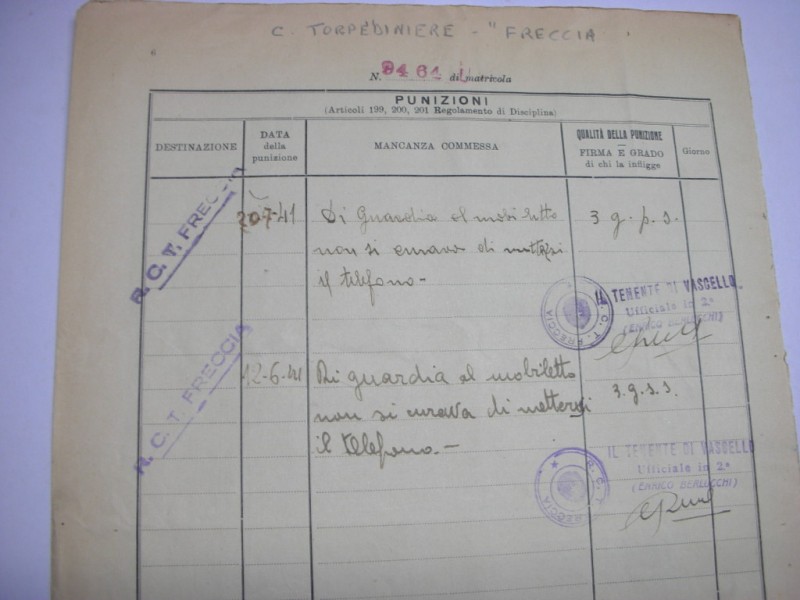 C. TORPEDINIERE - "FRECCIA
6
N. 8461 di matricola
PUNIZIONI
(Articoli 199, 200, 201 Regolamento di Disciplina)
DESTINAZIONE
DATA
della
punizione
MANCANZA COMMESSA
QUALITÀ DELLA PUNIZIONE
FIRMA E GRADO
di chi la infligge
Giorno
R. C. T. FRECCIA
20-7-41
Di Guardia al mobiletto
non si curava di mettersi
il telefono -
3 g. p. s.
R. C. T. FRECCIA
IL TENENTE DI VASCELLO
Ufficiale in 2ª
(ENRICO BERLUCCHI)
R. C. T. FRECCIA
12-6-41
Di guardia al mobiletto
non si curava di mettersi
il telefono. -
3. g. s. s.
R. C. T. FRECCIA
IL TENENTE DI VASCELLO
Ufficiale in 2ª
(ENRICO BERLUCCHI)